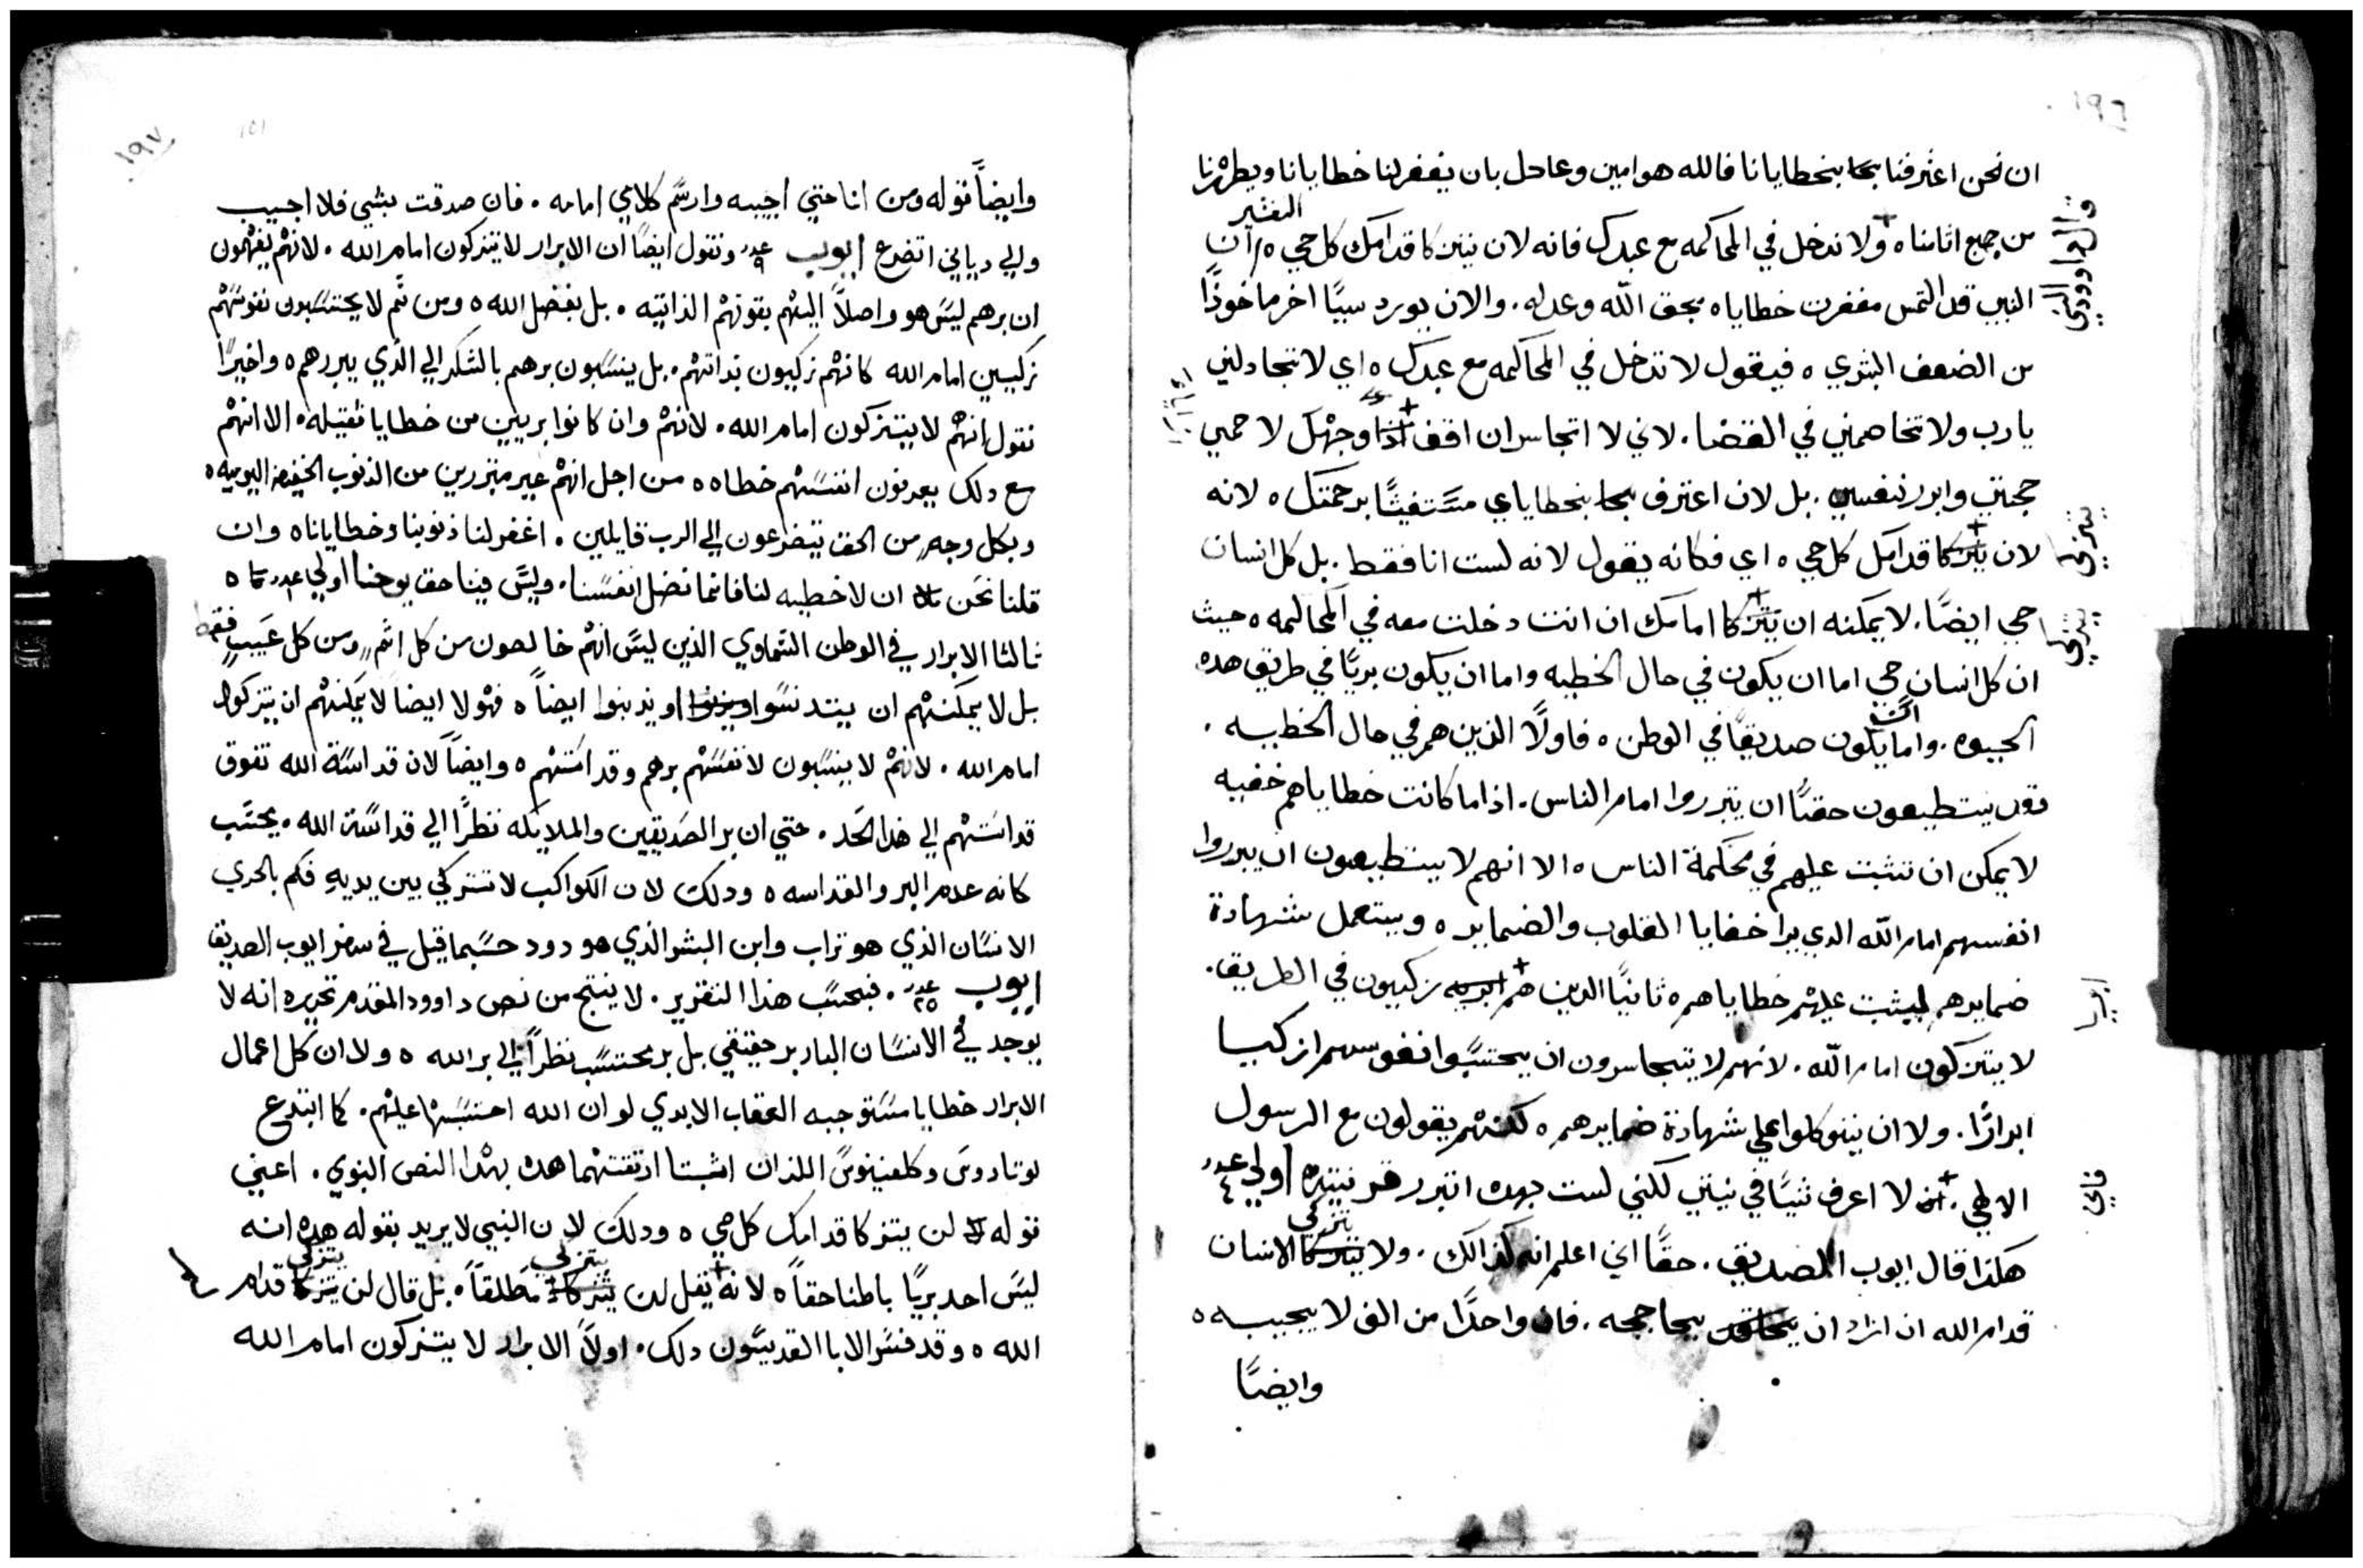 ١٩٦
ان نحن اعترفنا بخطايانا فالله هو امين وعادل بان يغفر لنا خطايانا ويطهرنا
من جميع اثامنا ه ولا تدخل في المحاكمه مع عبدك فانه لان يتزكا قدامك كل حي ه التفسير ان
قال داوود النبي
النبي قد التمس مغفرت خطاياه بحق الله وعدله . والان يورد سببًا اخر ماخوذًا
من الضعف البشري ه فيقول لا تدخل في المحاكمه مع عبدك ه اي لا تتجادلني
يا رب ولا تخاصمني في القضا . لاني لا اتجاسر ان اقف وجهك لاحمي
حجتي وابرر نفسي . بل لان اعترف بخطاياي مستغيثًا برحمتك ه لانه
لان يتزكا قدامك كل حي ه اي فكانه يقول لانه لست انا فقط . بل كل انسان
يتزكى
حي ايضًا . لا يمكنه ان يتزكا امامك ان انت دخلت معه في المحاكمه ه حيث
يتزكى
ان كل انسان حي اما ان يكون في حال الخطيه واما ان يكون بريًا في طريق هده
الحيوه . واما ان يكون صديقًا في الوطن ه فاولًا الذين هم في حال الخطييه .
فقد يستطيعون حقًا ان يتبرروا امام الناس . اذا ما كانت خطاياهم خفيه
لا يمكن ان تثبت عليهم في محكمة الناس ه الا انهم لا يستطيعون ان يبرروا
انفسهم امام الله الدي يرا خفايا القلوب والضماير ه ويستعمل شهادة
ضمايرهم ليثبت عليهم خطاياهم ه ثانيًا الدين هم زكييون في الطريق .
لا يتزكون امام الله . لانهم لا يتجاسرون ان يحتسبوا نفوسهم ازكيا
ابرارًا . ولا ان يتوكلوا على شهادة ضمايرهم ه لكنهم يقولون مع الرسول
الالهي . لا اعرف شيًا في نيتي لكني لست بهده اتبرر قرنتيه اولي عدد ٤
فاني
هكذا قال ايوب الصديق . حقًا اني اعلم انه كذالك . ولا يتزكى الانسان
قدام الله ان اراد ان يحاججه . فان واحدًا من الف لا يجيبه ه
وايضًا
١٩٧
١٥١
وايضًا قوله ومن انا حتي اجيبه وارسم كلامي امامه . فان صدقت بشي فلا اجيب
والي دياني اتضرع ايوب عدد ٩ ونقول ايضًا ان الابرار لا يتزكون امام الله . لانهم يفهمون
ان برهم ليس هو واصلًا اليهم بقوتهم الذاتيه . بل بفضل الله ه ومن ثم لا يحتسبون نفوسهم
زكيين امام الله كانهم زكييون بذاتهم . بل ينسبون برهم بالشكر الي الذي يبررهم ه واخيرًا
نقول انهم لا يتزكون امام الله . لانهم وان كانوا بريين من خطايا ثقيله . الا انهم
مع دلك يعرفون انفسهم خطاه ه من اجل انهم غير متبررين من الذنوب الخفيفه اليوميه ه
وبكل وجهٍ من الحق يتضرعون الي الرب قايلين . اغفر لنا ذنوبنا وخطايانا ه وان
قلنا نحن ان لا خطيه لنا فانما نضل انفسنا . وليس فينا حق يوحنا اولي عدد
ثالثا الابرار في الوطن السماوي الذين ليس انهم خالصون من كل اثمٍ ومن كل عيبٍ فقط
بل لا يمكنهم ان يتدنسوا او يذنبوا ايضًا ه فهولا ايضا لا يمكنهم ان يتزكوا
امام الله . لانهم لا ينسبون لانفسهم برهم وقداستهم ه وايضًا لان قداسة الله تفوق
قداستهم الي هذا الحد . حتي ان بر الصديقين والملايكه نظرًا الي قداسة الله . يحتسب
كانه عدم البر والقداسه ه ودلك لان الكواكب لا تتزكي بين يديه فكم بالحري
الانسان الذي هو تراب وابن البشر الذي هو دود حسبما قيل في سفر ايوب الصديق
ايوب عدد ٢٥ . فبحسب هذا التقرير . لا ينتج من نص داوود المقدم تحريره انه لا
يوجد في الانسان البار بر حقيقي بل بر محتسب نظرًا الي بر الله ه ولا ان كل اعمال
الابرار خطايا مستوجبه العقاب الابدي لو ان الله احتسبها عليهم . كما ابتدع
لوتاروس وكلفينوس اللذان اثبتا ارتقتهما هده بهدا النص النبوي . اعني
قوله لن يتزكا قدامك كل حي ه ودلك لان النبي لا يريد بقوله هده انه
ليس احد بريًا باطنا حقاً ه لانه يقل لن يتزكي مطلقاً . بل قال لن يتزكى قدام
الله ه وقد فسر الابا القديسون دلك . اولًا الابرار لا يتزكون امام الله